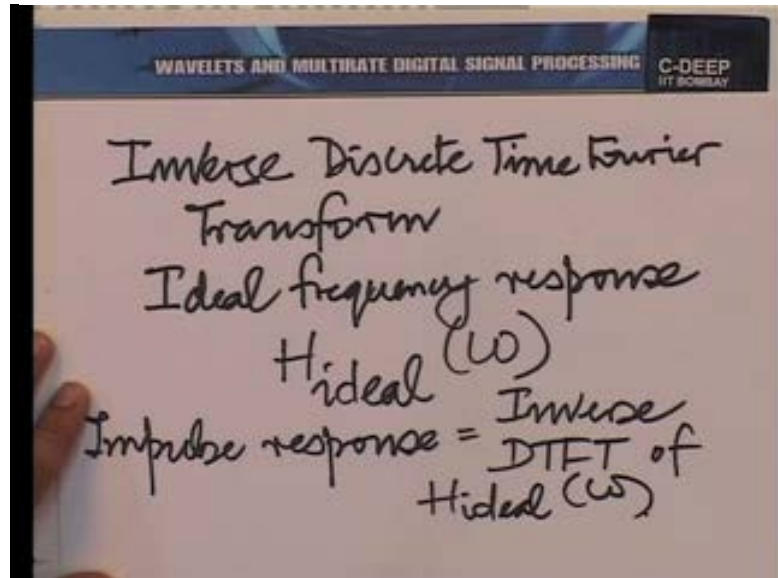 WAVELETS AND MULTIRATE DIGITAL SIGNAL PROCESSING
C-DEEP
IIT BOMBAY
Inverse Discrete Time Fourier
Transform
Ideal frequency response
Hideal (ω)
Impulse response = Inverse
DTFT of
Hideal (ω)